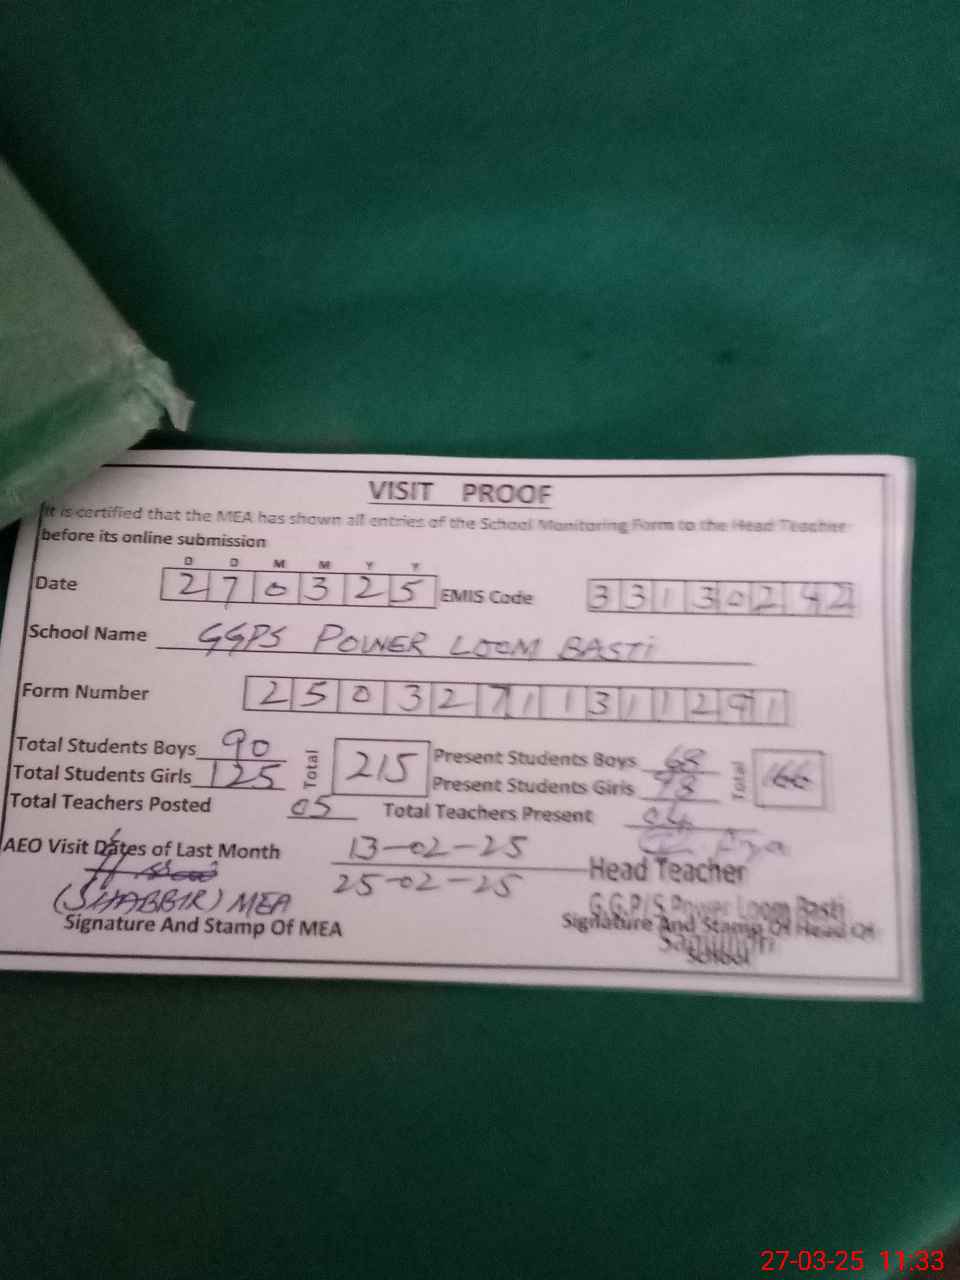 VISIT PROOF
It is certified that the MEA has shown all entries of the School Monitoring Form to the Head Teacher
before its online submission
D D M M Y Y
Date 2 7 0 3 2 5 EMIS Code 3 3 1 3 0 2 4 2
School Name GGPS POWER LOOM BASTi
Form Number 2 5 0 3 2 7 1 1 3 1 1 2 9 1
Total Students Boys 90 Total 215 Present Students Boys 68 Total 166
Total Students Girls 125 Present Students Girls 98
Total Teachers Posted 05 Total Teachers Present 04
AEO Visit Dates of Last Month 13-02-25
25-02-25
Head Teacher
(SHABBIR) MEA
G.G.P/S Power Loom Basti
Signature And Stamp Of MEA
Signature And Stamp Of Head Of
School
27-03-25 11:33